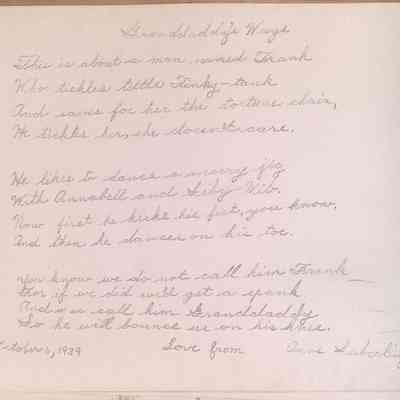 Granddaddy's Ways
This is about a man named Frank
Who tickles little Tinky-tank
And saves for her the torture chair,
He tickles her, she doesn't care.
He likes to dance a merry jig
With Annabell and
Now first he kicks his feet, you know,
And then he dances on his toe.
You know we do not call him Frank
For if we did we'll get a spank
And so we call him Granddaddy
So he will bounce us on his knee.
1939 Love from Anne